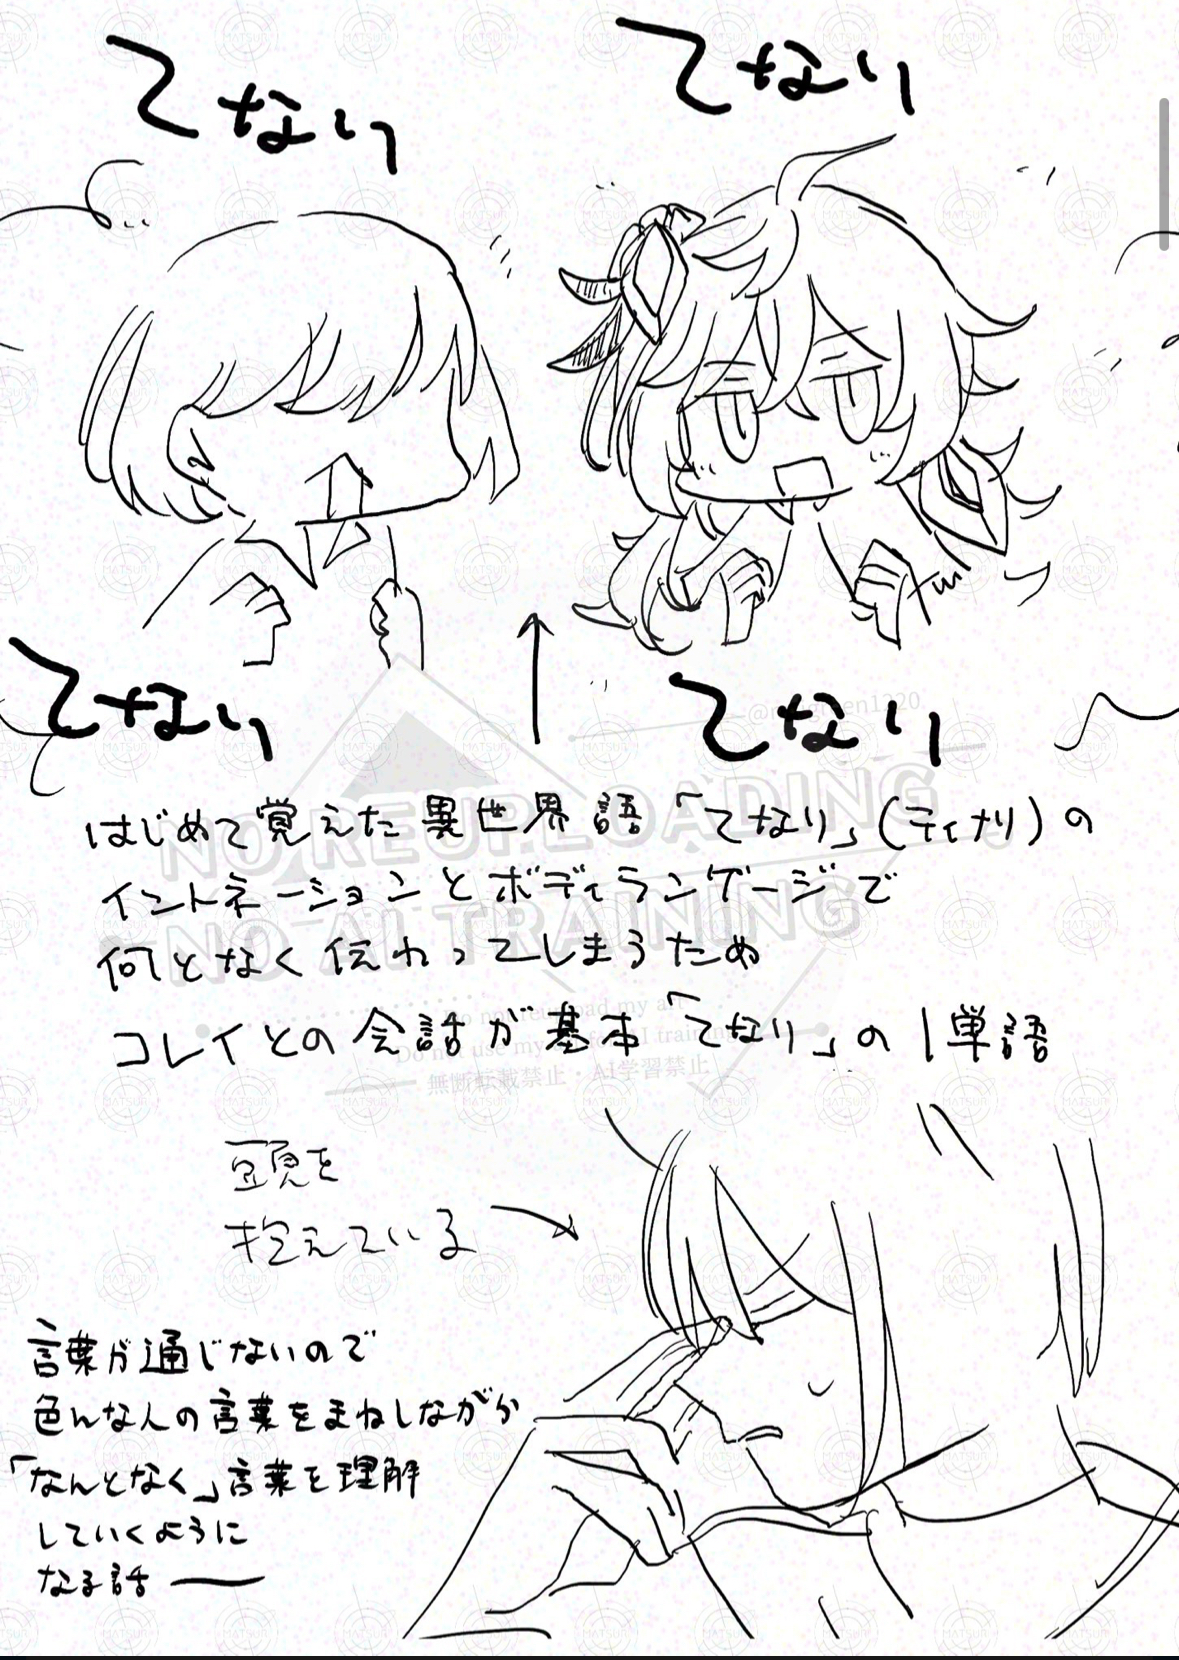 てなり
てなり
てなり
てなり
はじめて覚えた異世界語「てなり」(ティナリ)の
イントネーションとボディランゲージで
何となく伝わってしまうため
コレイとの会話が基本「てなり」の1単語
頭を
抱えている
言葉が通じないので
色んな人の言葉をまねしながら
「なんとなく」言葉を理解
していくように
なる話
NO REUPLOADING
NO AI TRAINING
Do not reupload my art
無断転載禁止・AI学習禁止
MATSUR